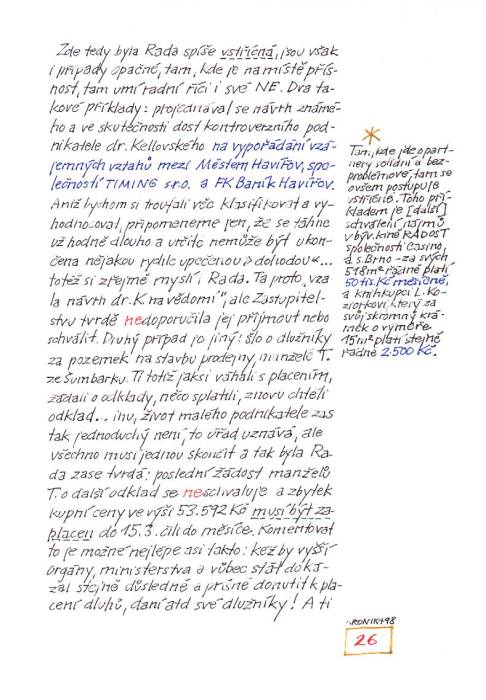 Zde tedy byla Rada spíše vstřícná, jsou však
i případy opačné, tam, kde je na místě přís-
nost, tam umí radní říci i své NE. Dva ta-
kové příklady: projednával se návrh známé-
ho a ve skutečnosti dost kontroverzního pod-
nikatele dr. Kellovského na vypořádání vzá-
jemných vztahů mezi Městem Havířov, spo-
lečností TIMING s.r.o. a FK Baník Havířov.
Aniž bychom si troufali věc klasifikovat a vy-
hodnocovat, připomeneme jen, že se táhne
už hodně dlouho a určitě nemůže být ukon-
čena nějakou rychle upečenou »dohodou«...
totéž si zřejmě myslí i Rada. Ta proto „vza-
la návrh dr. K na vědomí", ale Zastupitel-
stvu tvrdě nedoporučila jej přijmout nebo
schválit. Druhý případ je jiný: šlo o dlužníky
za pozemek na stavbu prodejny, manžele T.
ze Šumbarku. Ti totiž jaksi váhali s placením,
žádali o odklady, něco splatili, znovu chtěli
odklad... inu, život malého podnikatele zas
tak jednoduchý není, to úřad uznává, ale
všechno musí jednou skončit a tak byla Ra-
da zase tvrdá: poslední žádost manželů
T. o další odklad se neschvaluje a zbytek
kupní ceny ve výši 53.592 Kč musí být za-
placen do 15.3. čili do měsíce. Komentovat
to je možné nejlépe asi takto: kéž by vyšší
orgány, ministerstva a vůbec stát doká-
zal stejně důsledně a přísně donutit k pla-
cení dluhů, daní atd své dlužníky! A ti
*
Tam, kde jde o part-
nery solidní a bez-
problémové, tam se
ovšem postupuje
vstřícně. Toho pří-
kladem je [další]
schválení nájmů
v býv. kině RADOST
společnosti Casino,
a.s. Brno - za svých
518m² řádně platí
50 tis. Kč měsíčně,
a knihkupci L. Ko-
ziorkovi, který za
svůj skromný krá-
mek o výměře
15m² platí stejně
řádně 2.500 Kč.
KRONIK+98
26